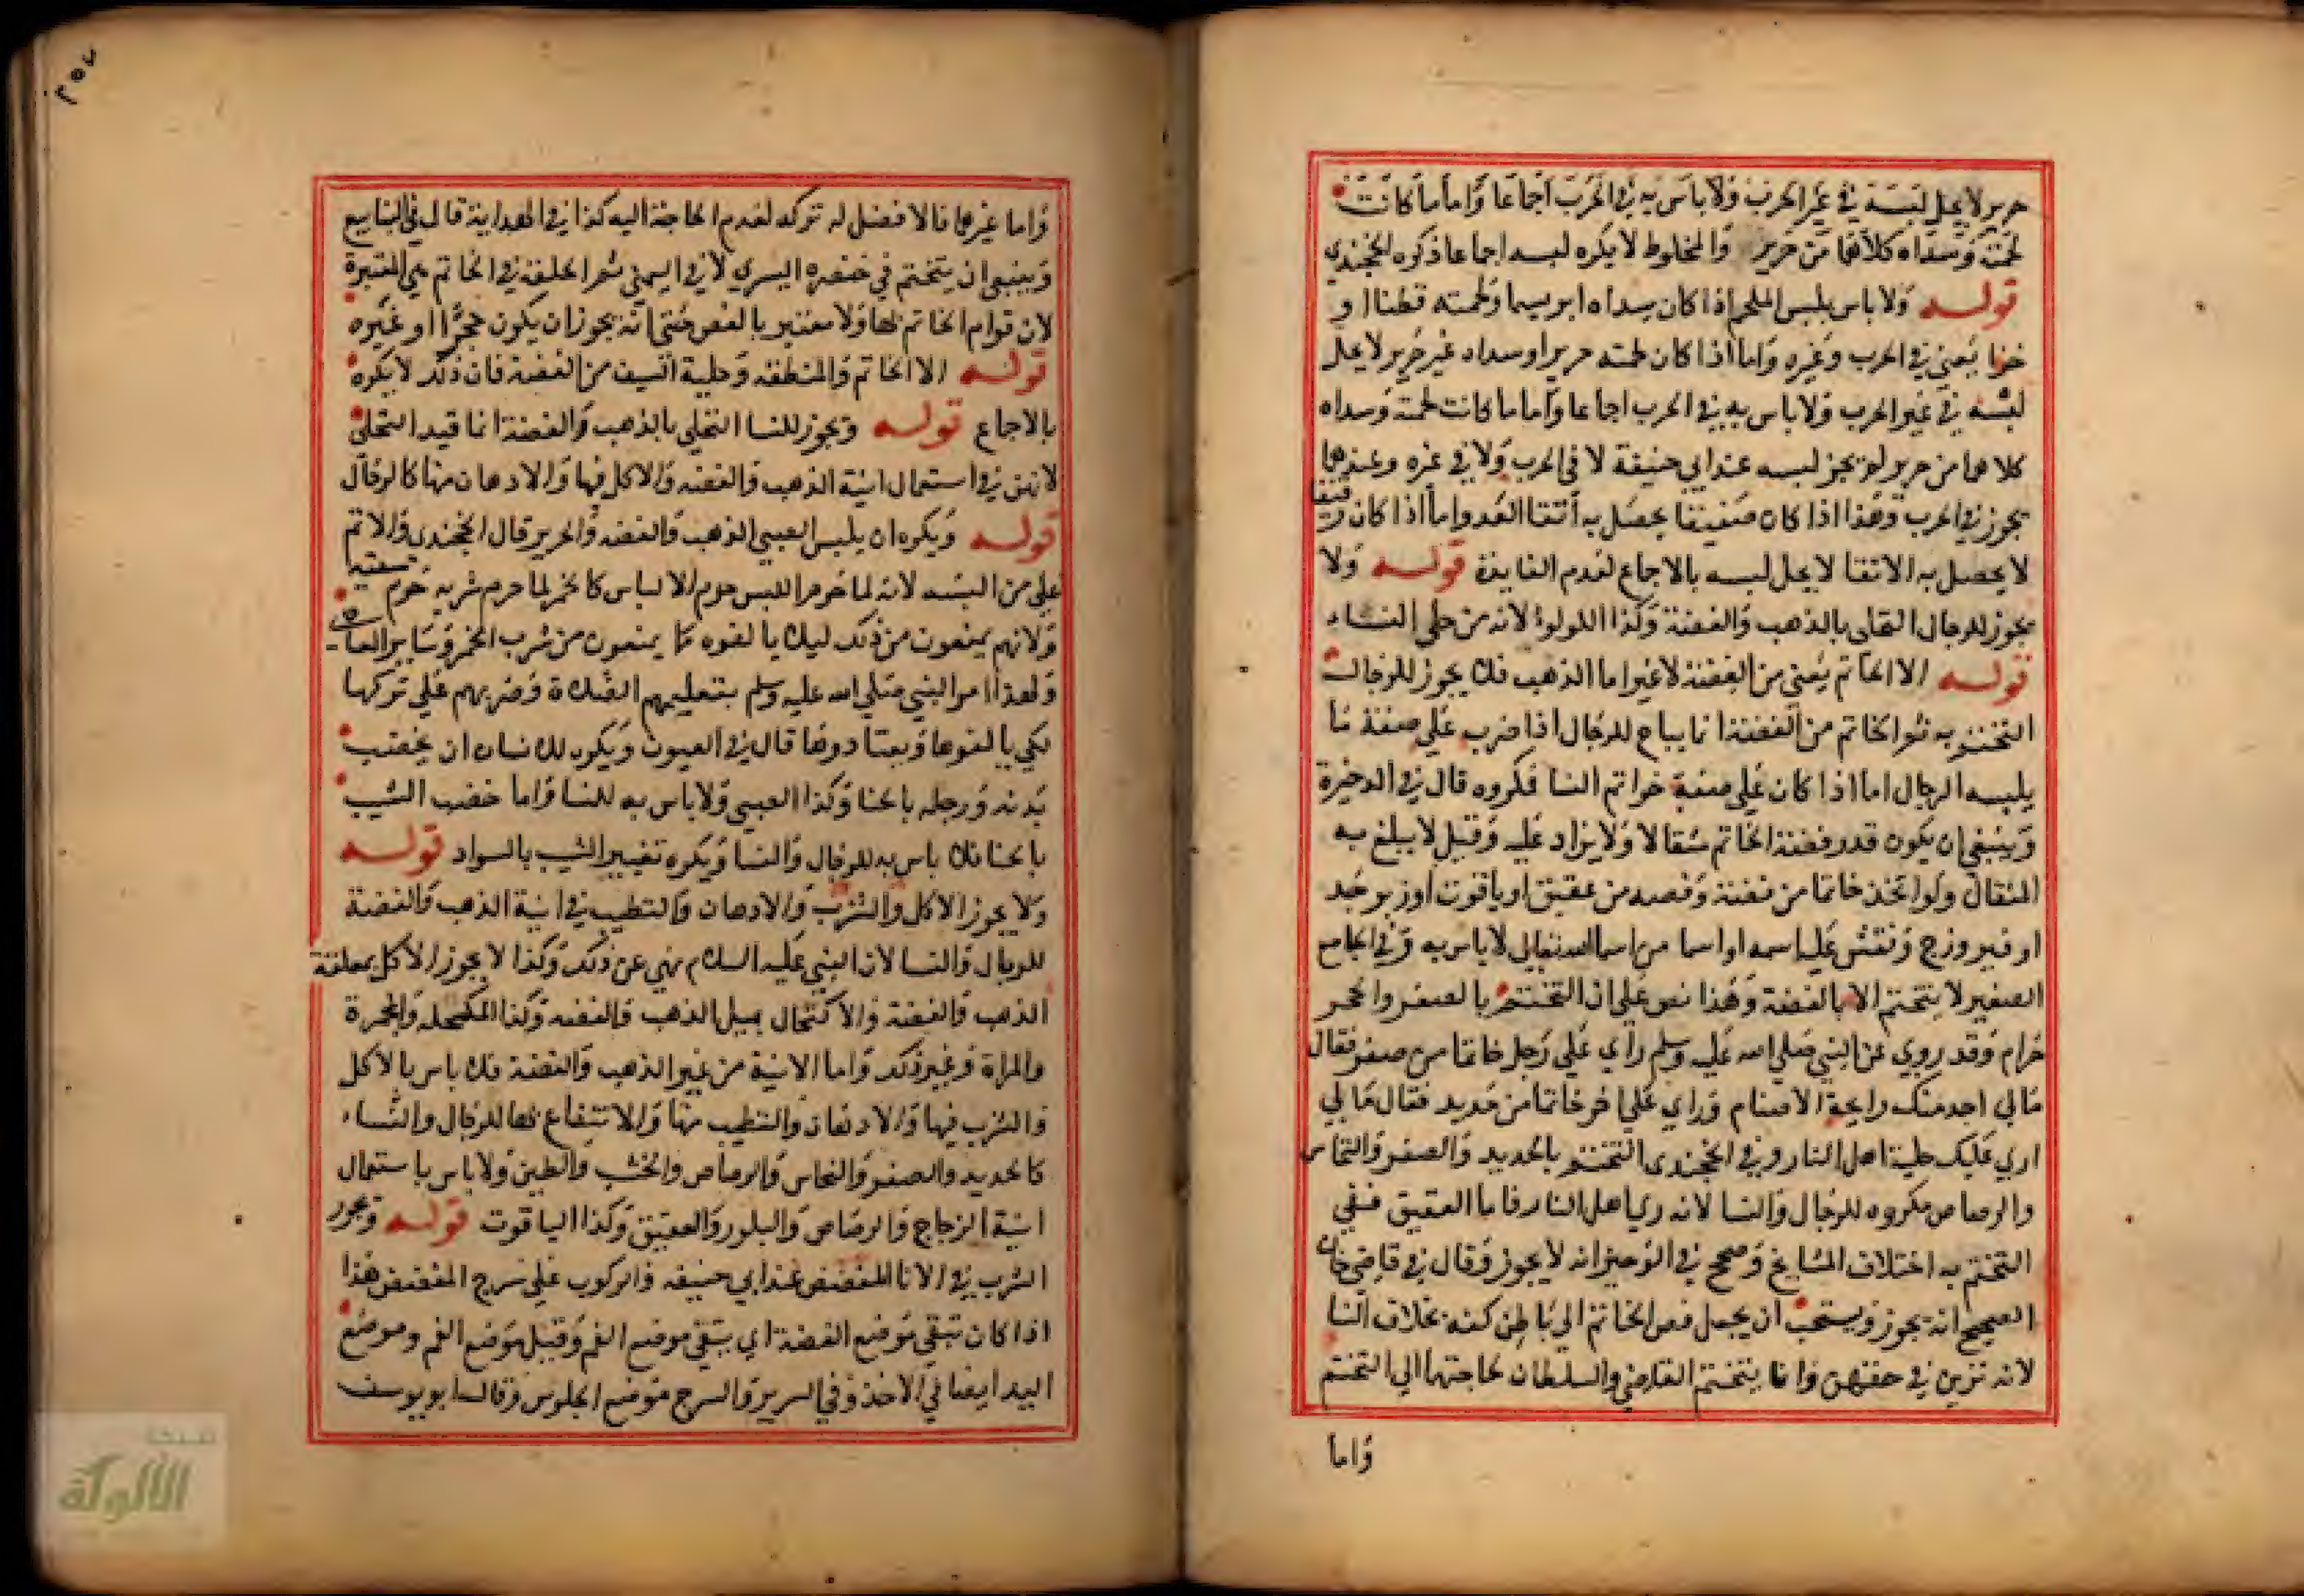 حرير لا يحل لبسه في غير الحرب ولا باس به في الحرب اجماعا واما ما كانت
لحمته وسداه كلاهما من حرير والمخلوط لا يكره لبسه اجماعا ذكره الخجندي
قوله ولا باس بلبس الملحم اذا كان سداه ابريسما ولحمته قطنا او
خزا يعني في الحرب وغيره واما اذا كان لحمته حريرا وسداه غير حرير لا يحل
لبسه في غير الحرب ولا باس به في الحرب اجماعا واما ما كانت لحمته وسداه
كلاهما من حرير لم يجز لبسه عند ابي حنيفة لا في الحرب ولا في غره وعندهما
يجوز في الحرب وهذا اذا كان صفيقا يحصل به اتقا العدو اما اذا كان رقيقا
لا يحصل به الاتقا لا يحل لبسه بالاجماع لعدم الفايدة قوله ولا
يجوز للرجال التحلي بالذهب والفضة وكذا اللولوء لانه من حلي النساء
قوله الا الخاتم يعني من الفضة لا غير اما الذهب فلا يجوز للرجال
التختم به ثم الخاتم من الفضة انا يباح للرجال اذا ضرب على صفة ما
يلبسه الرجال اما اذا كان على صفة خواتم النسا فمكروه قال في الدخيرة
وينبغي ان يكون قدر فضة الخاتم مثقالا ولا يزاد عليه وقيل لا يبلغ به
المثقال ولو اتخذ خاتما من فضة وفصه من عقيق او ياقوت او زبرجد
او فيروزج ونقش عليه اسمه او اسما من اسما الله تعالى لا باس به وفي الجامع
الصغير لا يتختم الا بالفضة وهذا نص على ان التختم بالصفر والحجر
حرام وقد روي عن النبي صلى الله عليه وسلم راي على رجل خاتما من صفر فقال
مالي اجد منك رايحة الاصنام وراي على اخر خاتما من حديد فقال ما لي
اري عليك حلية اهل النار وفي الخجندي التختم بالحديد والصفر والنحاس
والرصاص مكروه للرجال والنسا لانه زي اهل النار فاما العقيق ففي
التختم به اختلاف المشايخ وصحح في الوجيز انه لا يجوز وقال في قاضي خان
الصحيح انه يجوز ويستحب ان يجعل فص الخاتم الي باطن كفه بخلاف النسا
لانه تزين في حقهن وانا يتختم القاضي والسلطان لحاجتهما الي التختم
واما
٢٥٧
واما غيرهما فالافضل له تركه لعدم الحاجة اليه كذا في الهداية قال في الينابيع
وينبغي ان يتختم في خنصره اليسري لا في اليمني ثم الحلقة في الخاتم هي المعتبرة
لان قوام الخاتم بها ولا معتبر بالفص حتى انه يجوز ان يكون حجرا او غيره
قوله الا الخاتم والمنطقة وحلية السيف من الفضة فان ذلك لا يكره
بالاجماع قوله ويجوز للنسا التحلي بالذهب والفضة انا قيد التحلي
لانهن في استعمال انية الذهب والفضة والاكل فيها والادهان منها كالرجال
قوله ويكره ان يلبس الصبي الذهب والفضة والحرير قال الخجندي والاثم
على من البسه لانه لما حرم اللبس حرم الالباس كالخمر لما حرم شربه حرم سقيه
ولانهم يمنعون من ذلك ليلا يالفوه كما يمنعون من شرب الخمر وساير المعاصي
ولهذا امر النبي صلى الله عليه وسلم بتعليمهم الصلاة وضربهم على تركها
لكي يالفوها ويعتادوها قال في العيون ويكره للانسان ان يخضب
يديه ورجله بالحنا وكذا الصبي ولا باس به للنسا واما خضب الشيب
بالحنا فلا باس به للرجال والنسا ويكره تغيير الشيب بالسواد قوله
ولا يجوز الاكل والشرب والادهان والتطيب في انية الذهب والفضة
للرجال والنسا لان النبي عليه السلام نهي عن ذلك وكذا لا يجوز الاكل بملعقة
الذهب والفضة والاكتحال بميل الذهب والفضة وكذا المكحلة والمجمرة
والمراة وغير ذلك واما الانية من غير الذهب والفضة فلا باس بالاكل
والشرب فيها والادهان والتطيب منها والانتفاع بها للرجال والنساء
كالحديد والصفر والنحاس والرصاص والخشب والطين ولا باس باستعمال
انية الزجاج والرصاص والبلور والعقيق وكذا الياقوت قوله ويجوز
الشرب في الانا المفضض عند ابي حنيفه والركوب على سرج المفضض هذا
اذا كان تبقي موضع الفضة اي يتقي موضع الفم وقيل موضع الفم وموضع
اليد ايضا في الاخذ وفي السرير والسرج موضع الجلوس وقال ابو يوسف
شبكة
الألوكة